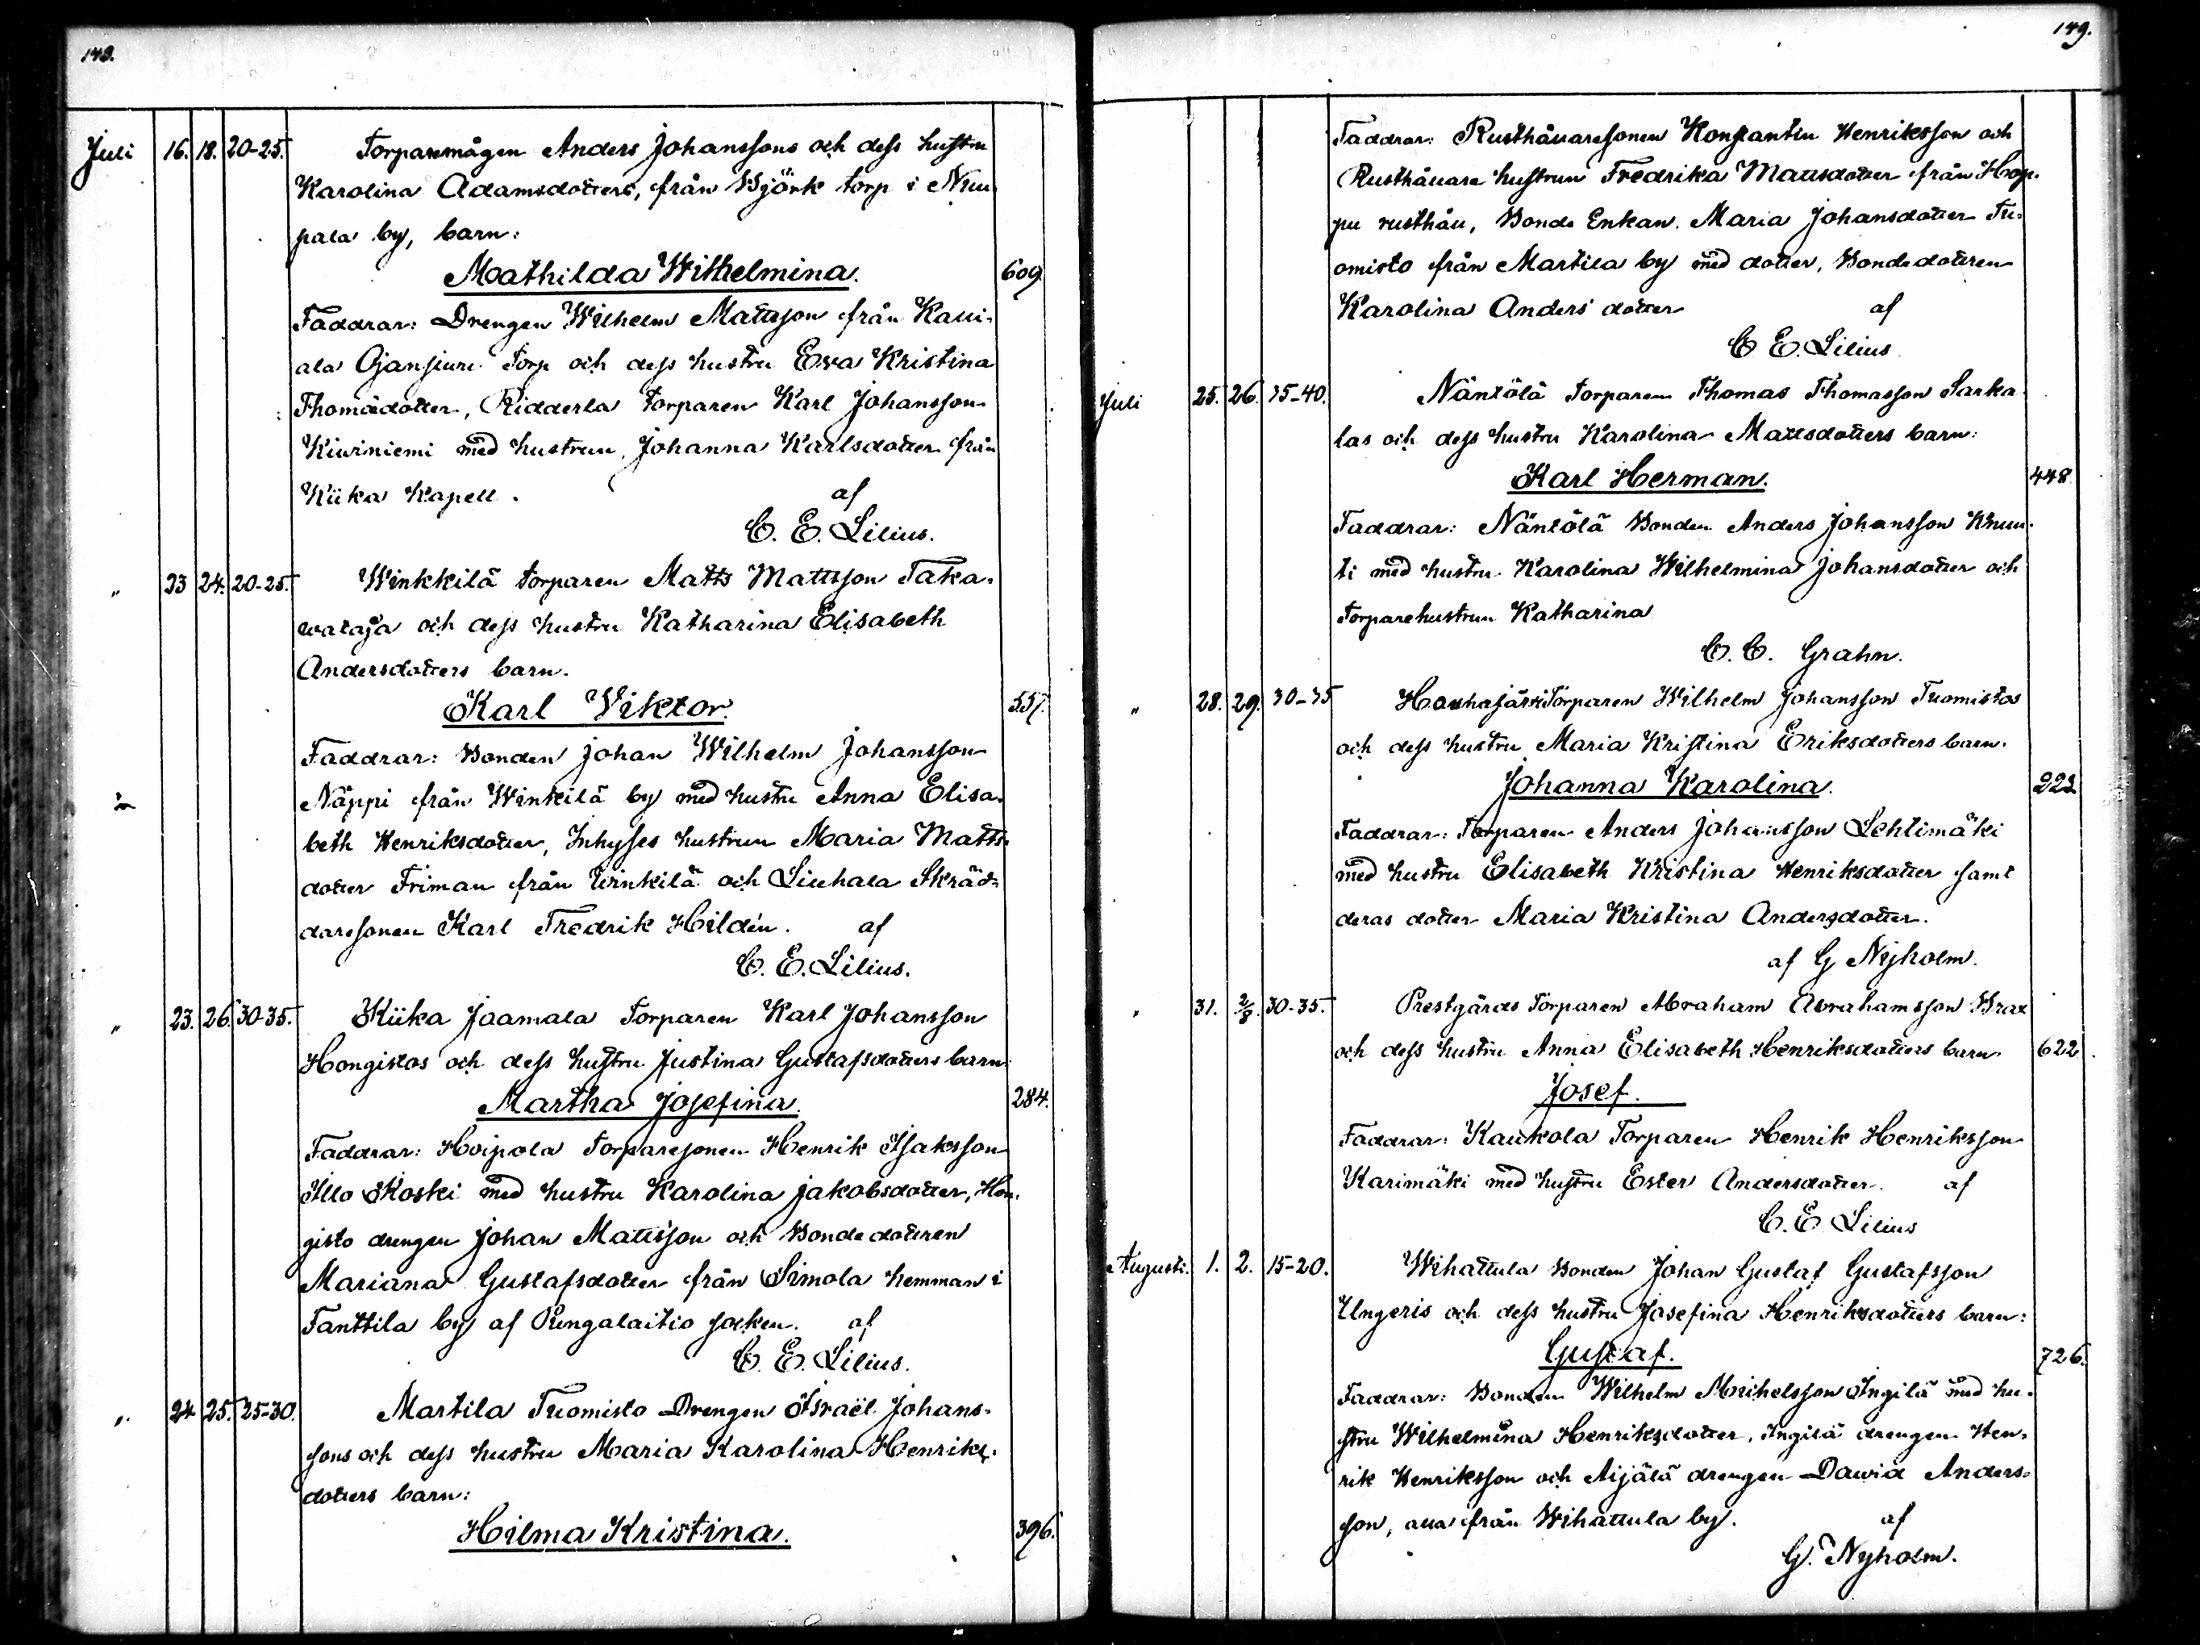 148.
Juli 16. 18. 20-25. Torparemågen Anders Johanssons och dess hustru
Karolina Adamsdotters, från Björk torp i Nuu-
pala by, barn:
Mathilda Wilhelmina. 609.
Faddrar: Drengen Wilhelm Mattsson från Kaui-
ala Ojansuu Torp och dess hustru Ewa Kristina
Thomädotter, Ridderla torparen Karl Johansson
Kiwiniemi med hustrun Johanna Karlsdotter från
Kiika Kapell. af
C. E. Lilius.
" 23 24. 20-25. Winkkilä torparen Matts Mattsson Taka-
walaja och dess hustru Katharina Elisabeth
Andersdotters barn.
Karl Viktor. 557.
Faddrar: Bonden Johan Wilhelm Johansson
Näppi från Winkilä by med hustru Anna Elisa-
beth Henriksdotter, Inhyses hustrun Maria Matts-
dotter Friman från Winkilä och Liuhala Skräd-
daresonen Karl Fredrik Hildén. af
C. E. Lilius.
" 23. 26. 30-35. Kiika Jaamala Torparen Karl Johansson
Hongistos och dess hustru Justina Gustafsdotters barn
Martha Josefina. 284.
Faddrar: Hoipola torparesonen Henrik Isaksson
Illo Koski med hustru Karolina Jakobsdotter, Hon-
gisto drengen Johan Mattsson och Bondedottren
Mariana Gustafsdotter från Simola hemman i
Tanttila by af Pungalaitio socken. af
C. E. Lilius.
" 24 25. 25-30. Martila Tuomisto Drengen Israël Johans-
sons och dess hustru Maria Karolina Henriks-
dotters barn:
Hilma Kristina. 396.
149.
Faddrar: Rusthåuaresonen Konstantin Henriksson och
Rusthåuare hustrun Fredrika Mattsdotter från Hop-
pu rusthåu, Bonde Enkan Maria Johansdotter Tu-
omisto från Martila by med dotter, Bondedottren
Karolina Anders dotter af
C E. Lilius
Juli 25. 26. 35-40. Näntölä Torparen Thomas Thomasson Sarka-
las och dess hustru Karolina Mattsdotters barn:
Karl Herman. 448
Faddrar: Näntölä Bonden Anders Johansson Knuu-
ti med hustru Karolina Wilhelmina Johansdotter och
Torparehustrun Katharina
C. C. Grahn.
" 28. 29. 30-35 Houhajärvi Torparen Wilhelm Johansson Tuomistos
och dess hustru Maria Kristina Eriksdotters barn.
Johanna Karolina. 222
Faddrar: Torparen Anders Johansson Lehtimäki
med hustru Elisabeth Kristina Henriksdotter samt
deras dotter Maria Kristina Andersdotter.
af G Nyholm.
" 31. 2/8. 30-35. Prestgårds Torparen Abraham Abrahamsson Brax
och dess hustru Anna Elisabeth Henriksdotters barn. 622.
Josef.
Faddrar: Kaukola Torparen Henrik Henriksson
Karimäki med hustru Ester Andersdotter. af
C. E Lilius
Augusti. 1. 2. 15-20. Wihattula Bonden Johan Gustaf Gustafsson
Ungeris och dess hustru Josefina Henriksdotters barn:
Gustaf. 726.
Faddrar: Bonden Wilhelm Michelsson Ingilä med hu-
stru Wilhelmina Henriksdotter, Ingilä drengen Hen-
rik Henriksson och Äijälä drengen Dawid Anders-
son, alla från Wihattula by. af
G. Nyholm.